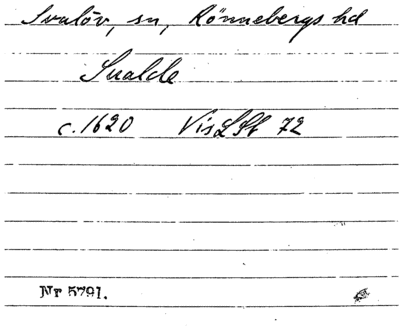 Svalöv, sn, Rönnebergs hd
Sualde
c. 1620 Vis LSt 72
Nr 5791.